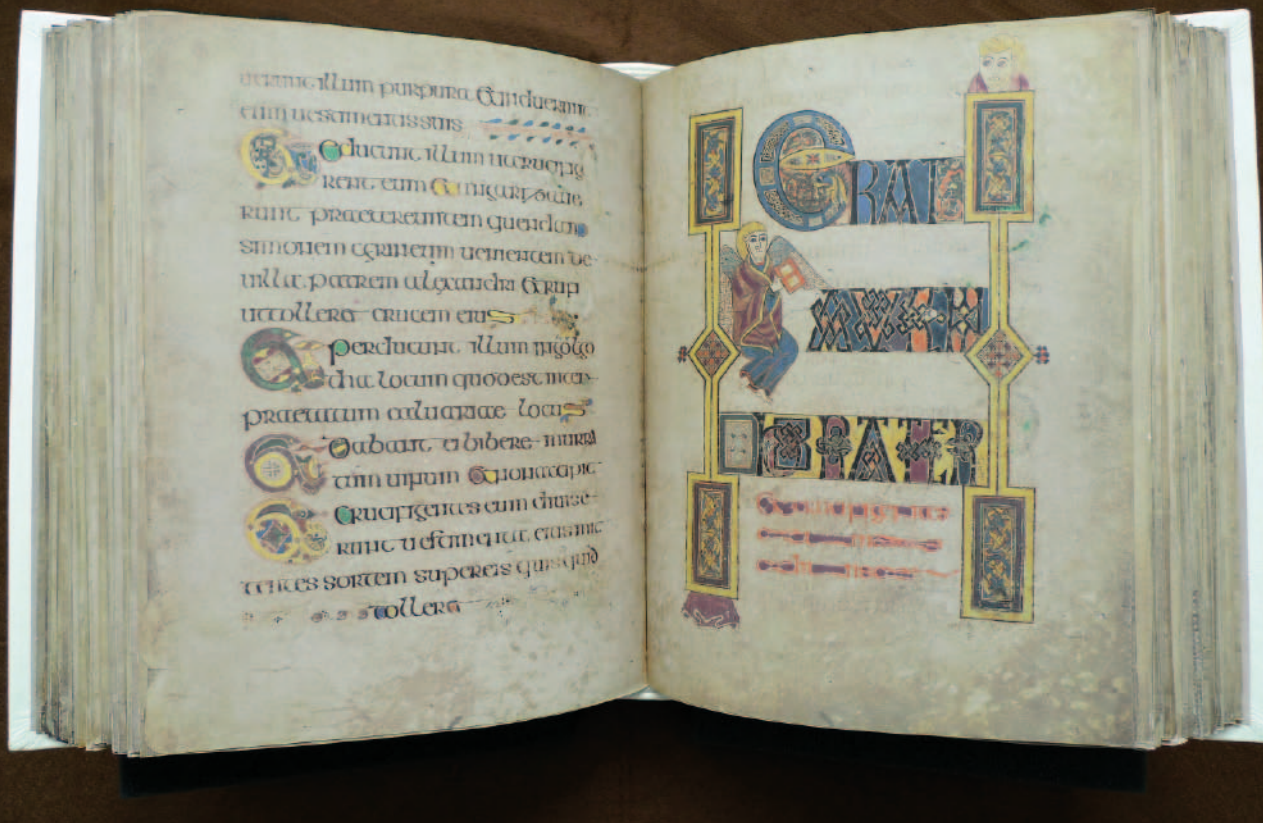 uerunt illum purpura & induerunt
eum uestimentis suis
Et educunt illum ut crucifig
rent eum & angarizaue
runt praetereuntem quendam
simonem cirineum uenientem de
uilla patrem alexandri & rufi
ut tolleret crucem eius
Et perducunt illum in golgo
tha locum quod est inter
praetatum caluariae locus
Et dabant ei bibere murra
tum uinum & non accipit
Et crucifigentes eum diuise
runt uestimenta eius mit
tentes sortem super eis quis quid
tolleret
ERAT